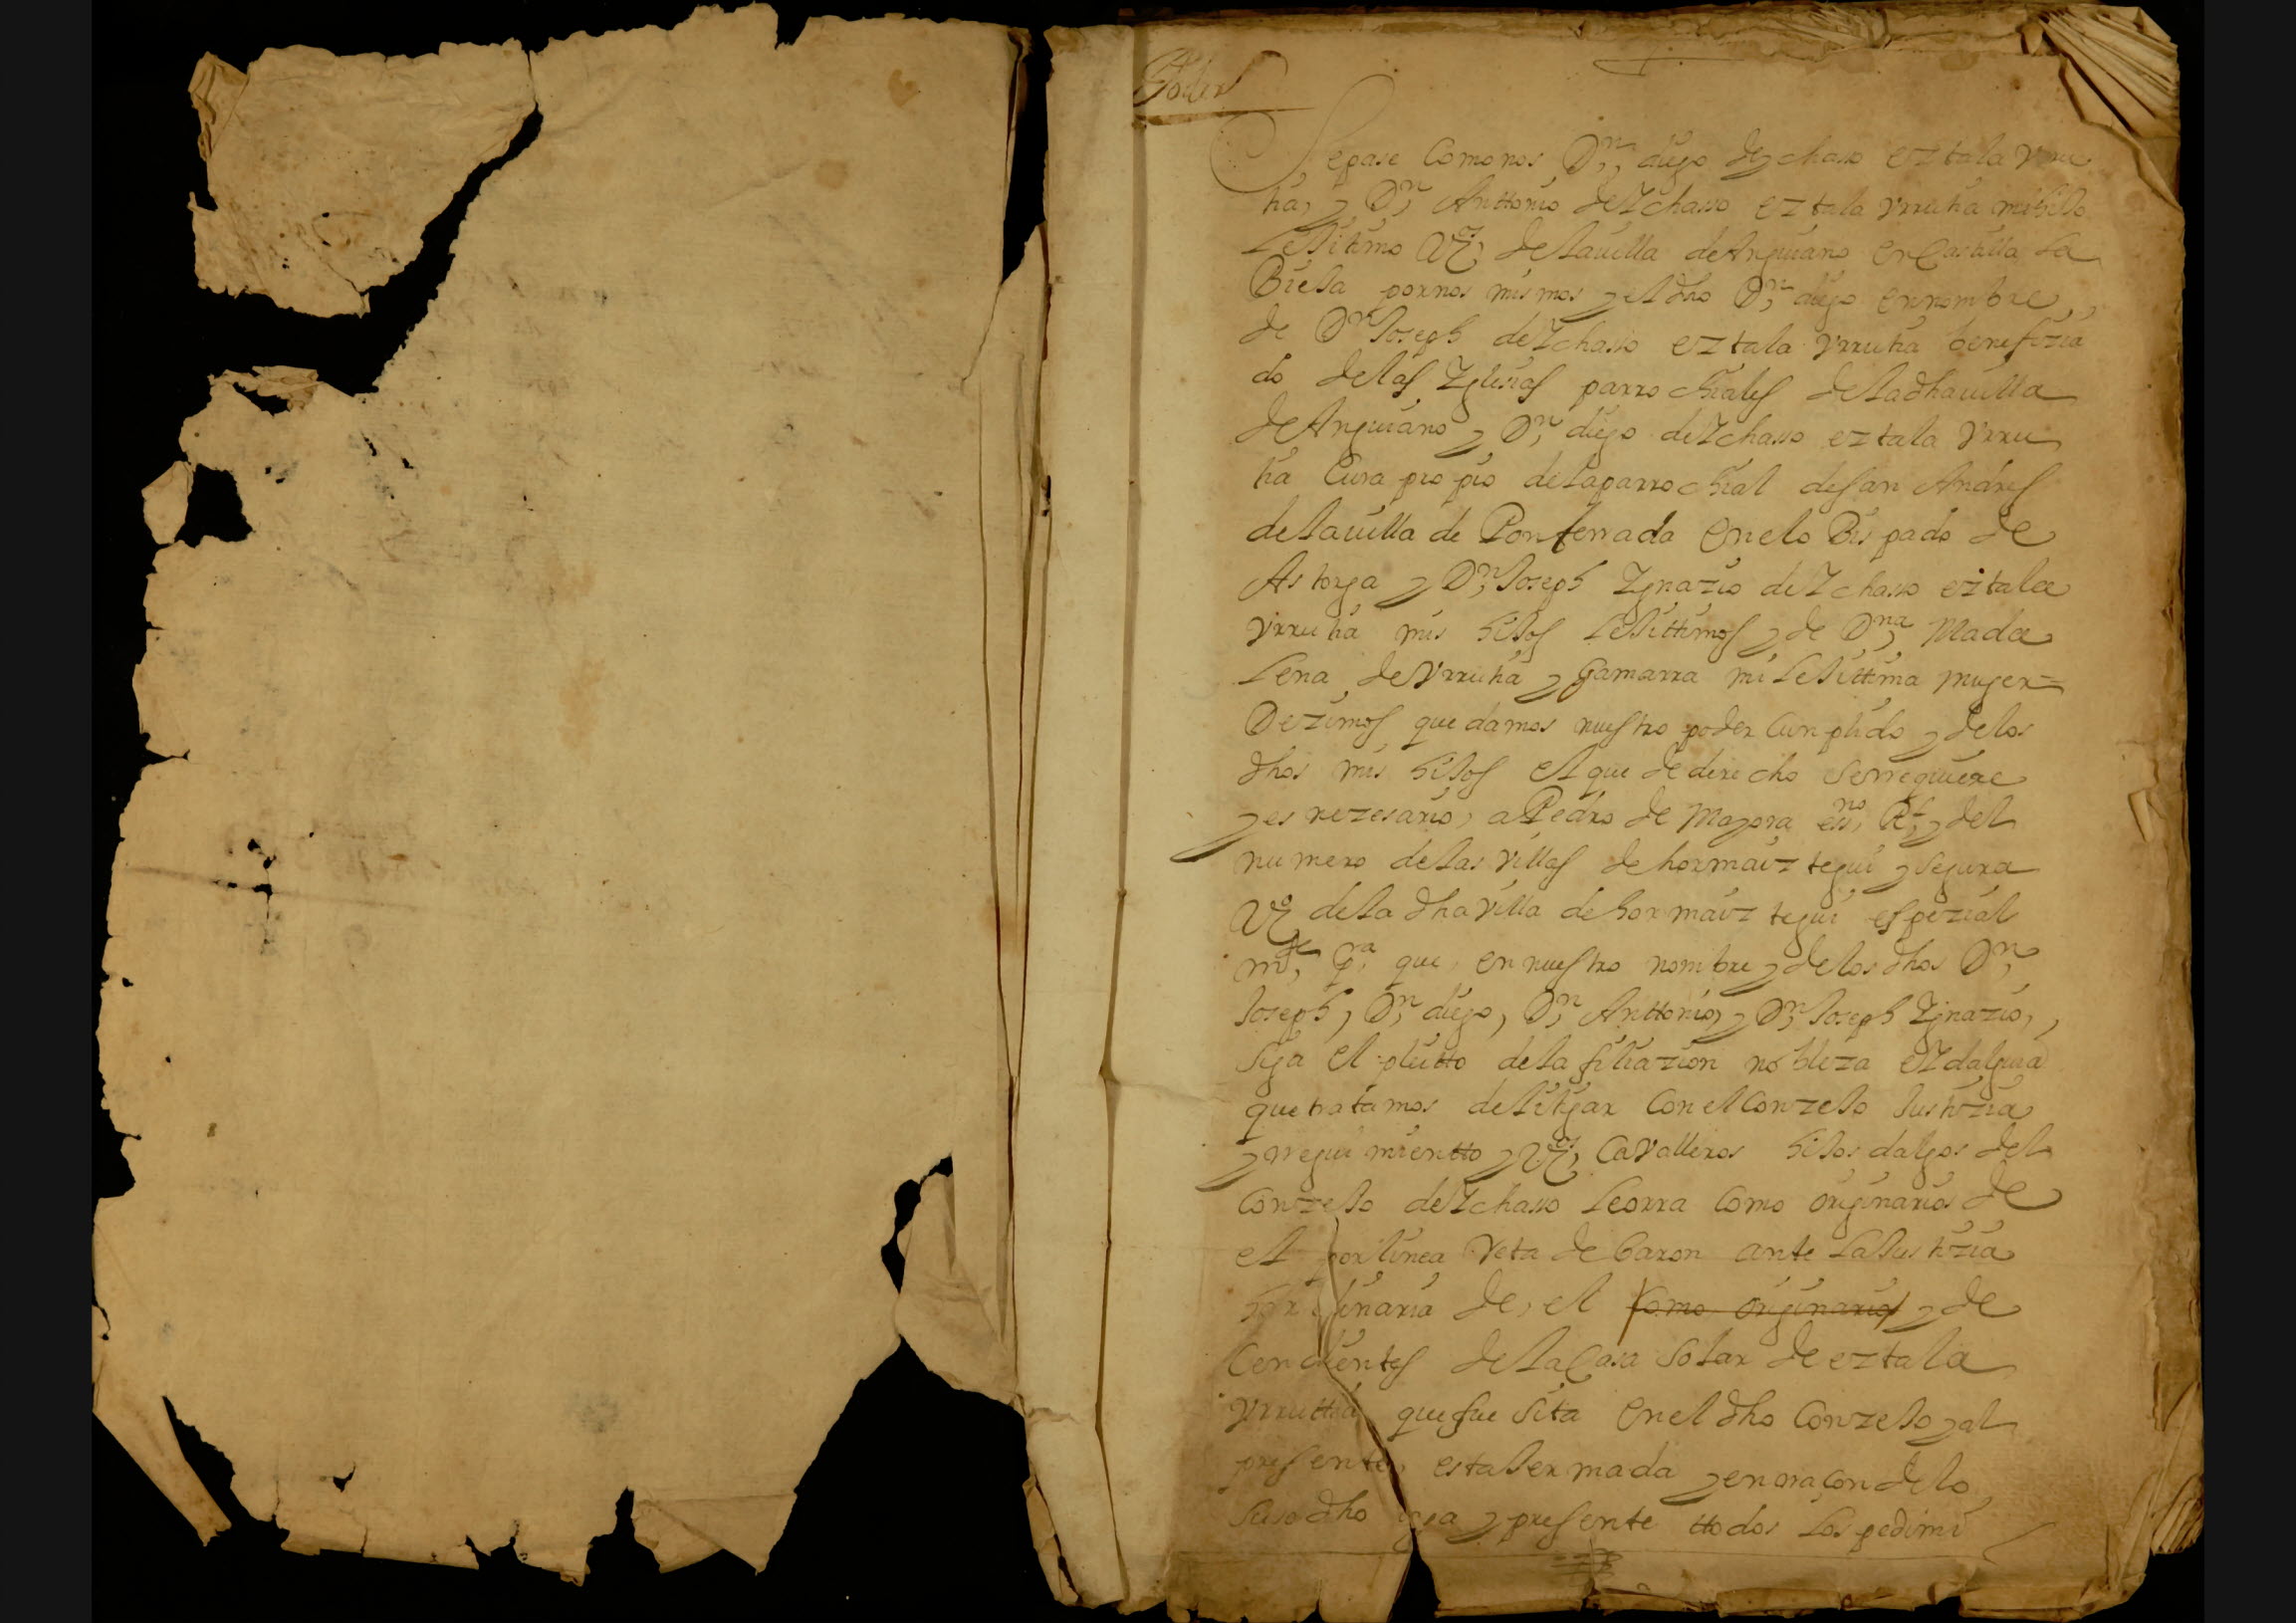 Poder
Sepase Como nos Dn, diego deYchasso eztala Vrru
tia, y Dn, Anttonio deYchasso eztala Vrrutia mi hiJo
LeJitimo Vºs, de la uilla de Anguiano en Castilla La
BieJa por nos mismos y el dho Dn, diego en nombre,,
de Dn, Joseph deYchasso eztala Vrrutia benefizia
do de las Yglesias parrochiales de la dha uilla
de Anguiano y Dn, diego deYchasso eztala Vrru
tia Cura propio de la parrochial de San Andres
de la uilla de Ponferrada en el oBispado de
Astorga y Dn, Joseph Ygnazio deYchasso eztala
Vrrutia mis hiJos LeJittimos y de Dna, Mada
Lena de Vrrutia y Gamarra mi LeJittima muger=
Dezimos que damos nuestro poder Cunplido y de los
dhos mis hiJos el que de derecho se rrequiere
y es nezesario, a Pedro de Mayora essno, Rl, y del
numero de las Villas de hormaiztegui y Segura
Vº de la dha Villa de hormaiztegui espezial
mte, Pa, que, en nuestro nombre y de los dhos Dn,
Joseph, Dn, diego, Dn, Anttonio, y Dn, Joseph Ygnazio,,
Siga el pleitto de la filiazion nobleza eYdalguia
que tratamos de litigar Con el ConzeJo Justizia
y rregimientto y Vºs, CaValleros hiJos dalgos del
ConzeJo deYchasso Leorra Como originarios de
el por linea Reta de baron ante La Justizia
hordinaria de, el Como originarios y de
Cendientes de la Casa Solar de eztala
Vrruttia que fue Sita en el dho ConzeJo y al
presente, esta Jermada y en rraçon de lo
Suso dho y presente ttodos Los pedimi